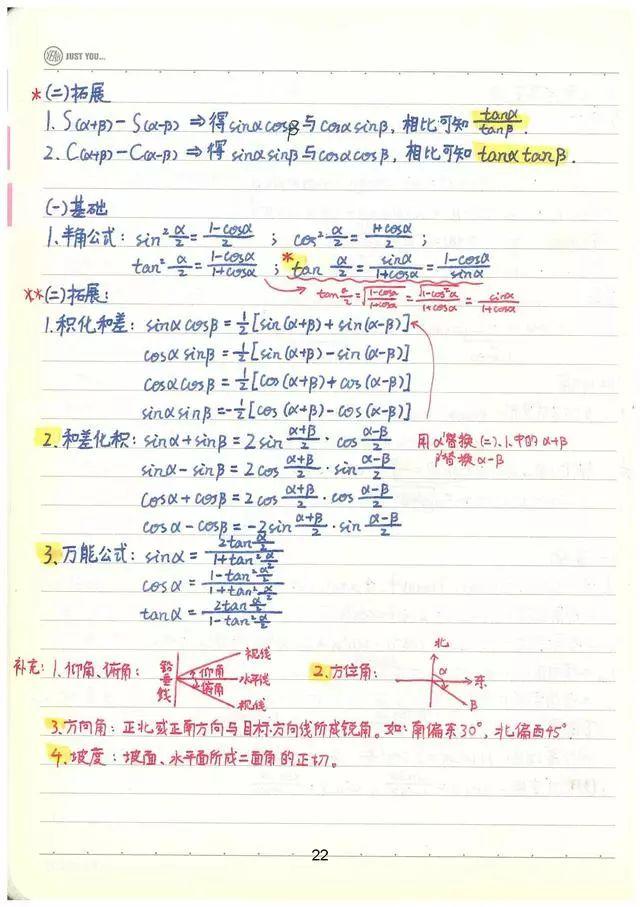 YEAH JUST YOU...
*(二)拓展
1. S(α+β)-S(α-β) ⇒ 得sinαcosβ与cosαsinβ, 相比可知 tanα/tanβ.
2. C(α+β)-C(α-β) ⇒ 得 sinαsinβ与cosαcosβ, 相比可知 tanαtanβ.
(一)基础
1.半角公式: sin²α/2 = (1-cosα)/2 ; cos²α/2 = (1+cosα)/2 ;
tan²α/2 = (1-cosα)/(1+cosα) ; *tan α/2 = sinα/(1+cosα) = (1-cosα)/sinα
tan α/2 = √((1-cosα)/(1+cosα)) = √(1-cos²α)/(1+cosα) = sinα/(1+cosα)
**(二)拓展:
1.积化和差: sinαcosβ = ½[sin(α+β)+sin(α-β)]
cosαsinβ = ½[sin(α+β)-sin(α-β)]
cosαcosβ = ½[cos(α+β)+cos(α-β)]
sinαsinβ = -½[cos(α+β)-cos(α-β)]
2.和差化积: sinα+sinβ = 2sin (α+β)/2 · cos (α-β)/2
用α'替换(二).1.中的α+β
sinα-sinβ = 2cos (α+β)/2 · sin (α-β)/2
β'替换α-β
cosα+cosβ = 2cos (α+β)/2 · cos (α-β)/2
cosα-cosβ = -2sin (α+β)/2 · sin (α-β)/2
3.万能公式: sinα = 2tan α/2 / (1+tan² α/2)
cosα = (1-tan² α/2) / (1+tan² α/2)
tanα = 2tan α/2 / (1-tan² α/2)
补充: 1.仰角、俯角:
铅垂线
视线
仰角
水平线
俯角
视线
2.方位角:
北
α
东
β
3.方向角: 正北或正南方向与目标方向线所成锐角。如: 南偏东30°, 北偏西45°.
4.坡度: 坡面、水平面所成二面角的正切。
22